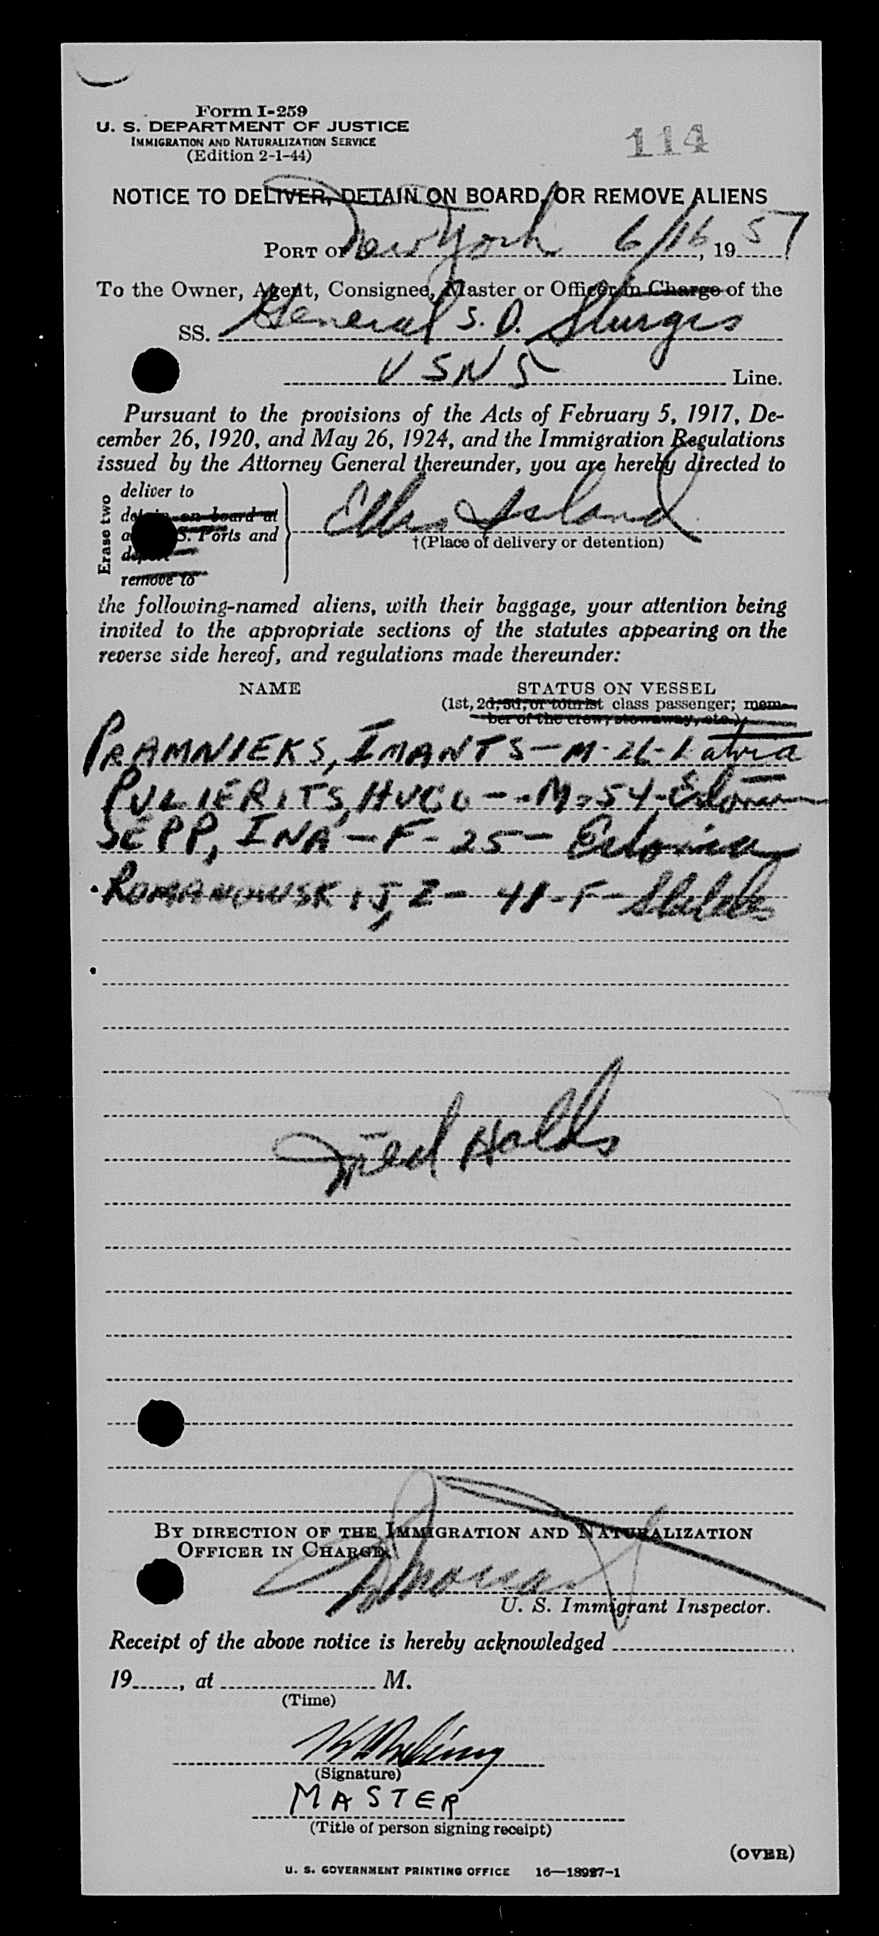 Form I-259
U. S. DEPARTMENT OF JUSTICE
IMMIGRATION AND NATURALIZATION SERVICE
(Edition 2-1-44)
114
NOTICE TO DELIVER, DETAIN ON BOARD, OR REMOVE ALIENS
PORT OF New York 6/16, 1957
To the Owner, Agent, Consignee, Master or Officer in Charge of the
SS. General S. D. Sturgis
USNS Line.
Pursuant to the provisions of the Acts of February 5, 1917, De-
cember 26, 1920, and May 26, 1924, and the Immigration Regulations
issued by the Attorney General thereunder, you are hereby directed to
Erase two
deliver to
detain on board at
S. Ports and
remove to
Ellis Island
†(Place of delivery or detention)
the following-named aliens, with their baggage, your attention being
invited to the appropriate sections of the statutes appearing on the
reverse side hereof, and regulations made thereunder:
NAME STATUS ON VESSEL
(1st, 2d, 3d, or tourist class passenger; mem-
ber of the crew, stowaway, etc.)
PRAMNIEKS, IMANTS - M - 26 - Latvia
PULIERITS, HUGO - M - 54 - Estonia
SEPP, INA - F - 25 - Estonia
ROMANOWSKI, J, Z - 41 - F -
Med Holds
BY DIRECTION OF THE IMMIGRATION AND NATURALIZATION
OFFICER IN CHARGE.
U. S. Immigrant Inspector.
Receipt of the above notice is hereby acknowledged
19......, at M.
(Time)
(Signature)
MASTER
(Title of person signing receipt)
(OVER)
U. S. GOVERNMENT PRINTING OFFICE 16—18927-1